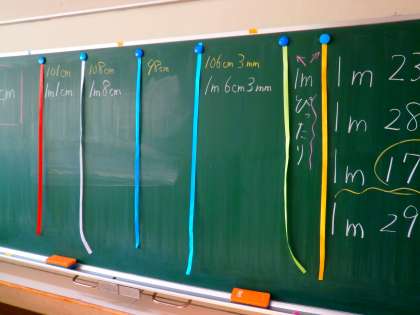 cm
101cm
1m1cm
108cm
1m8cm
98cm
106cm3mm
1m6cm3mm
1m
ぴったり
1m 23
1m 28
1m 17
1m 29